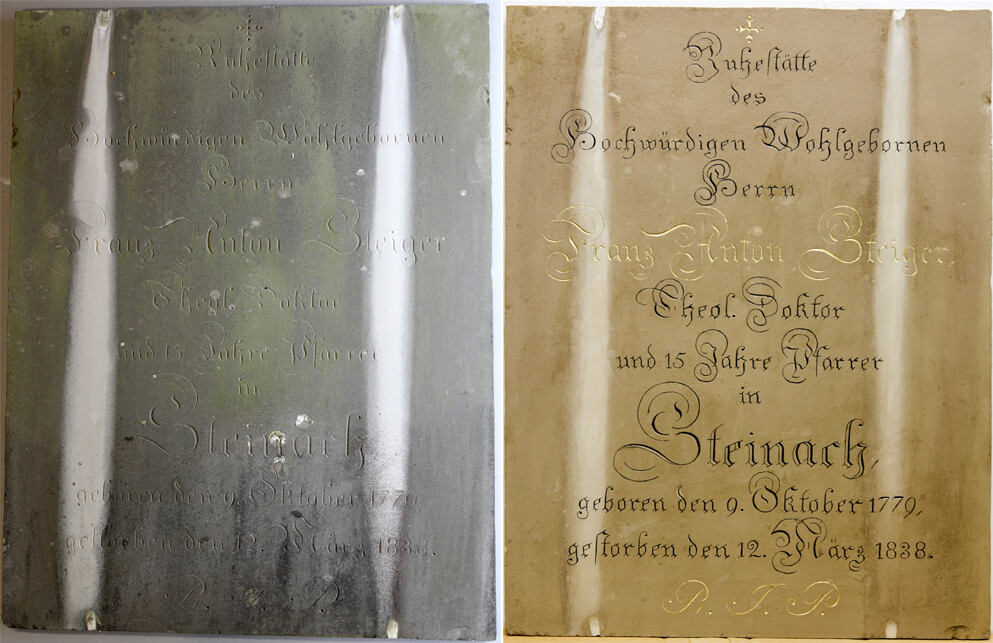 Ruhestätte
des
Hochwürdigen Wohlgebornen
Herrn
Franz Anton Steiger
Theol. Doktor
und 15 Jahre Pfarrer
in
Steinach,
geboren den 9. Oktober 1779,
gestorben den 12. März 1838.
R. I. P.
Ruhestätte
des
Hochwürdigen Wohlgebornen
Herrn
Franz Anton Steiger,
Theol. Doktor
und 15 Jahre Pfarrer
in
Steinach,
geboren den 9. Oktober 1779,
gestorben den 12. März 1838.
R. I. P.